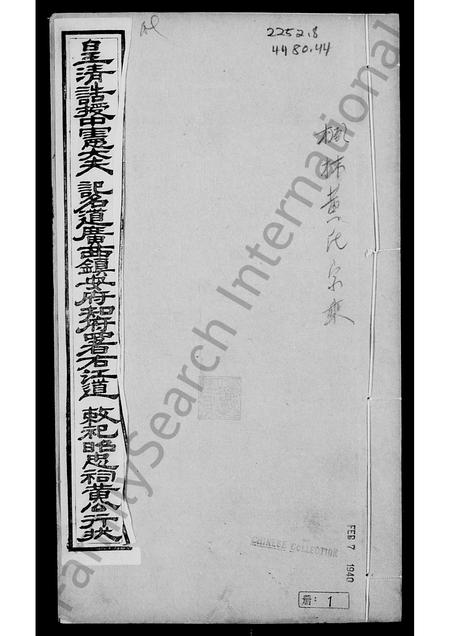 皇清誥授中憲大夫 記名道廣西鎮安府知府署右江道 敕祀昭忠祠黃公行狀
2252.8
4480.44
楓林黃氏宗乘
CHINESE COLLECTION
FEB 7 1940
冊: 1
FamilySearch International